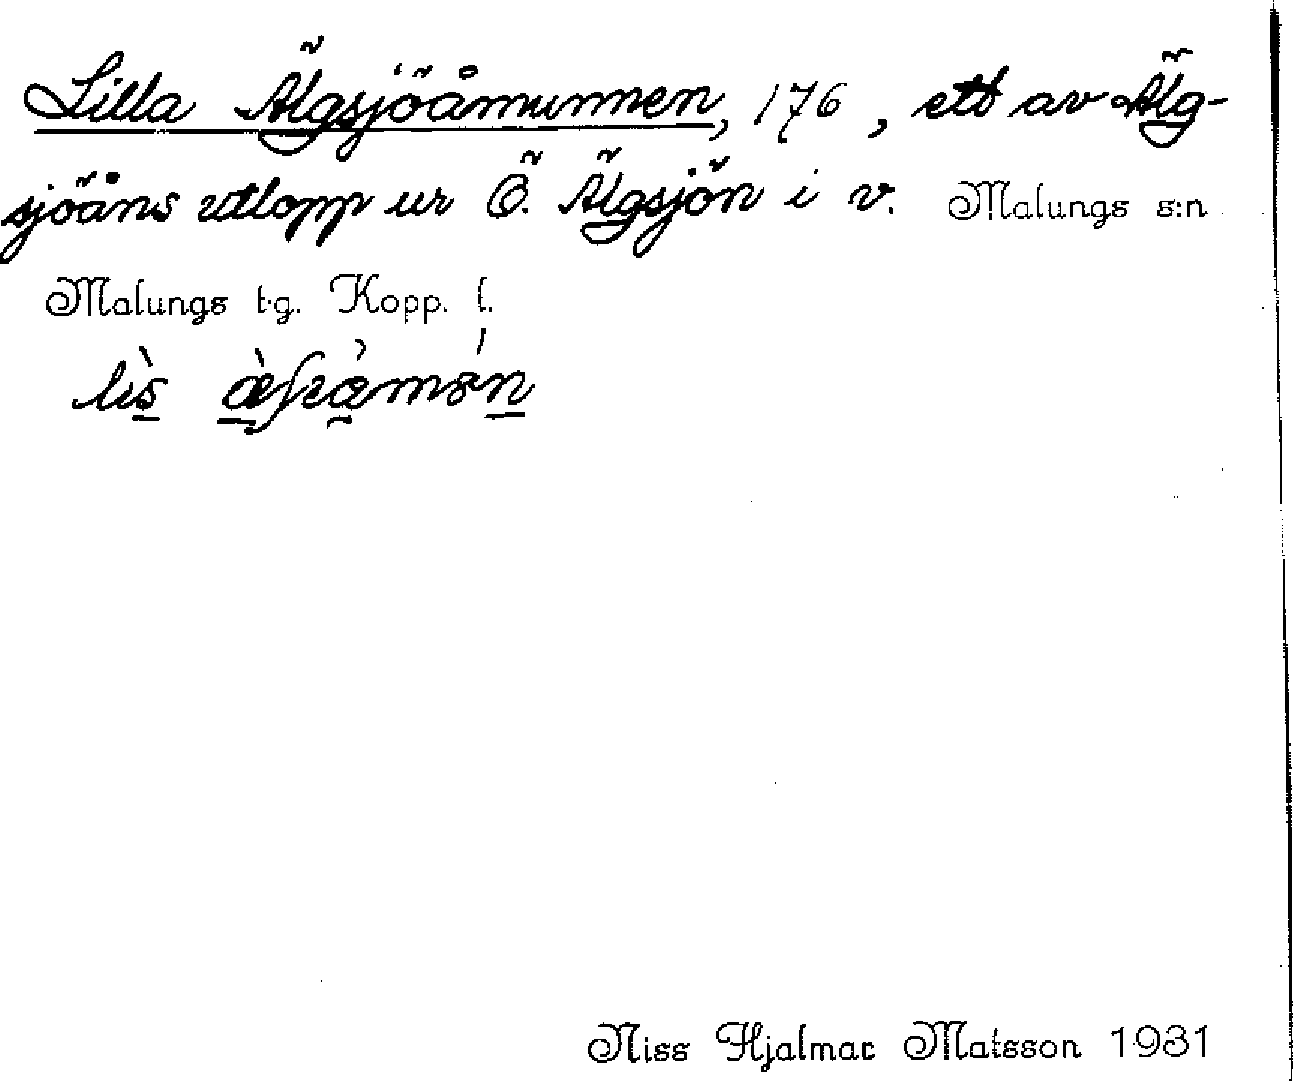 Lilla Älgsjöåmunnen, 176, ett av Älg-
sjöåns utlopp ur Ö. Älgsjön i v. Malungs s:n
Malungs t.g. Kopp. l.
Niss Hjalmar Matsson 1931